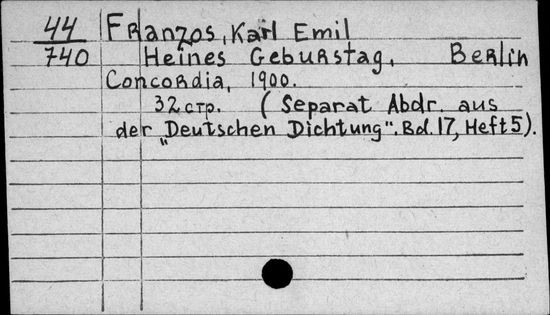 44 Franzos, Karl Emil
740 Heines Geburstag, Berlin
Concordia, 1900.
32 стр. (Separat Abdr. aus
der „Deutschen Dichtung". Bd. 17, Heft 5).